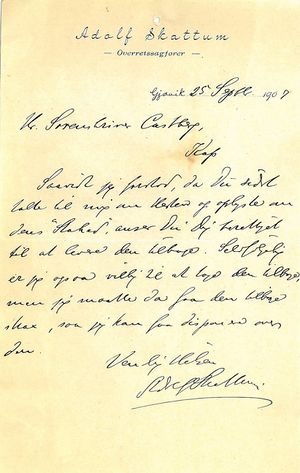 Adolf Skattum
— Overretssagfører —
Gjøvik 25 Septbr. 1907
Hr. Sorenskriver Castberg,
Kap
Saavidt jeg forstod, da Du sidst
talte til mig om Hesten og oplyste om
dens "Skavank", anser Du Dig berettiget
til at levere den tilbage. Selvfølgelig
er jeg ogsaa villig til at tage den tilbage,
men jeg maatte da faa den tilbage
strax, som jeg kan faa disponere over
den.
Venlig Hilsen
Adolf Skattum